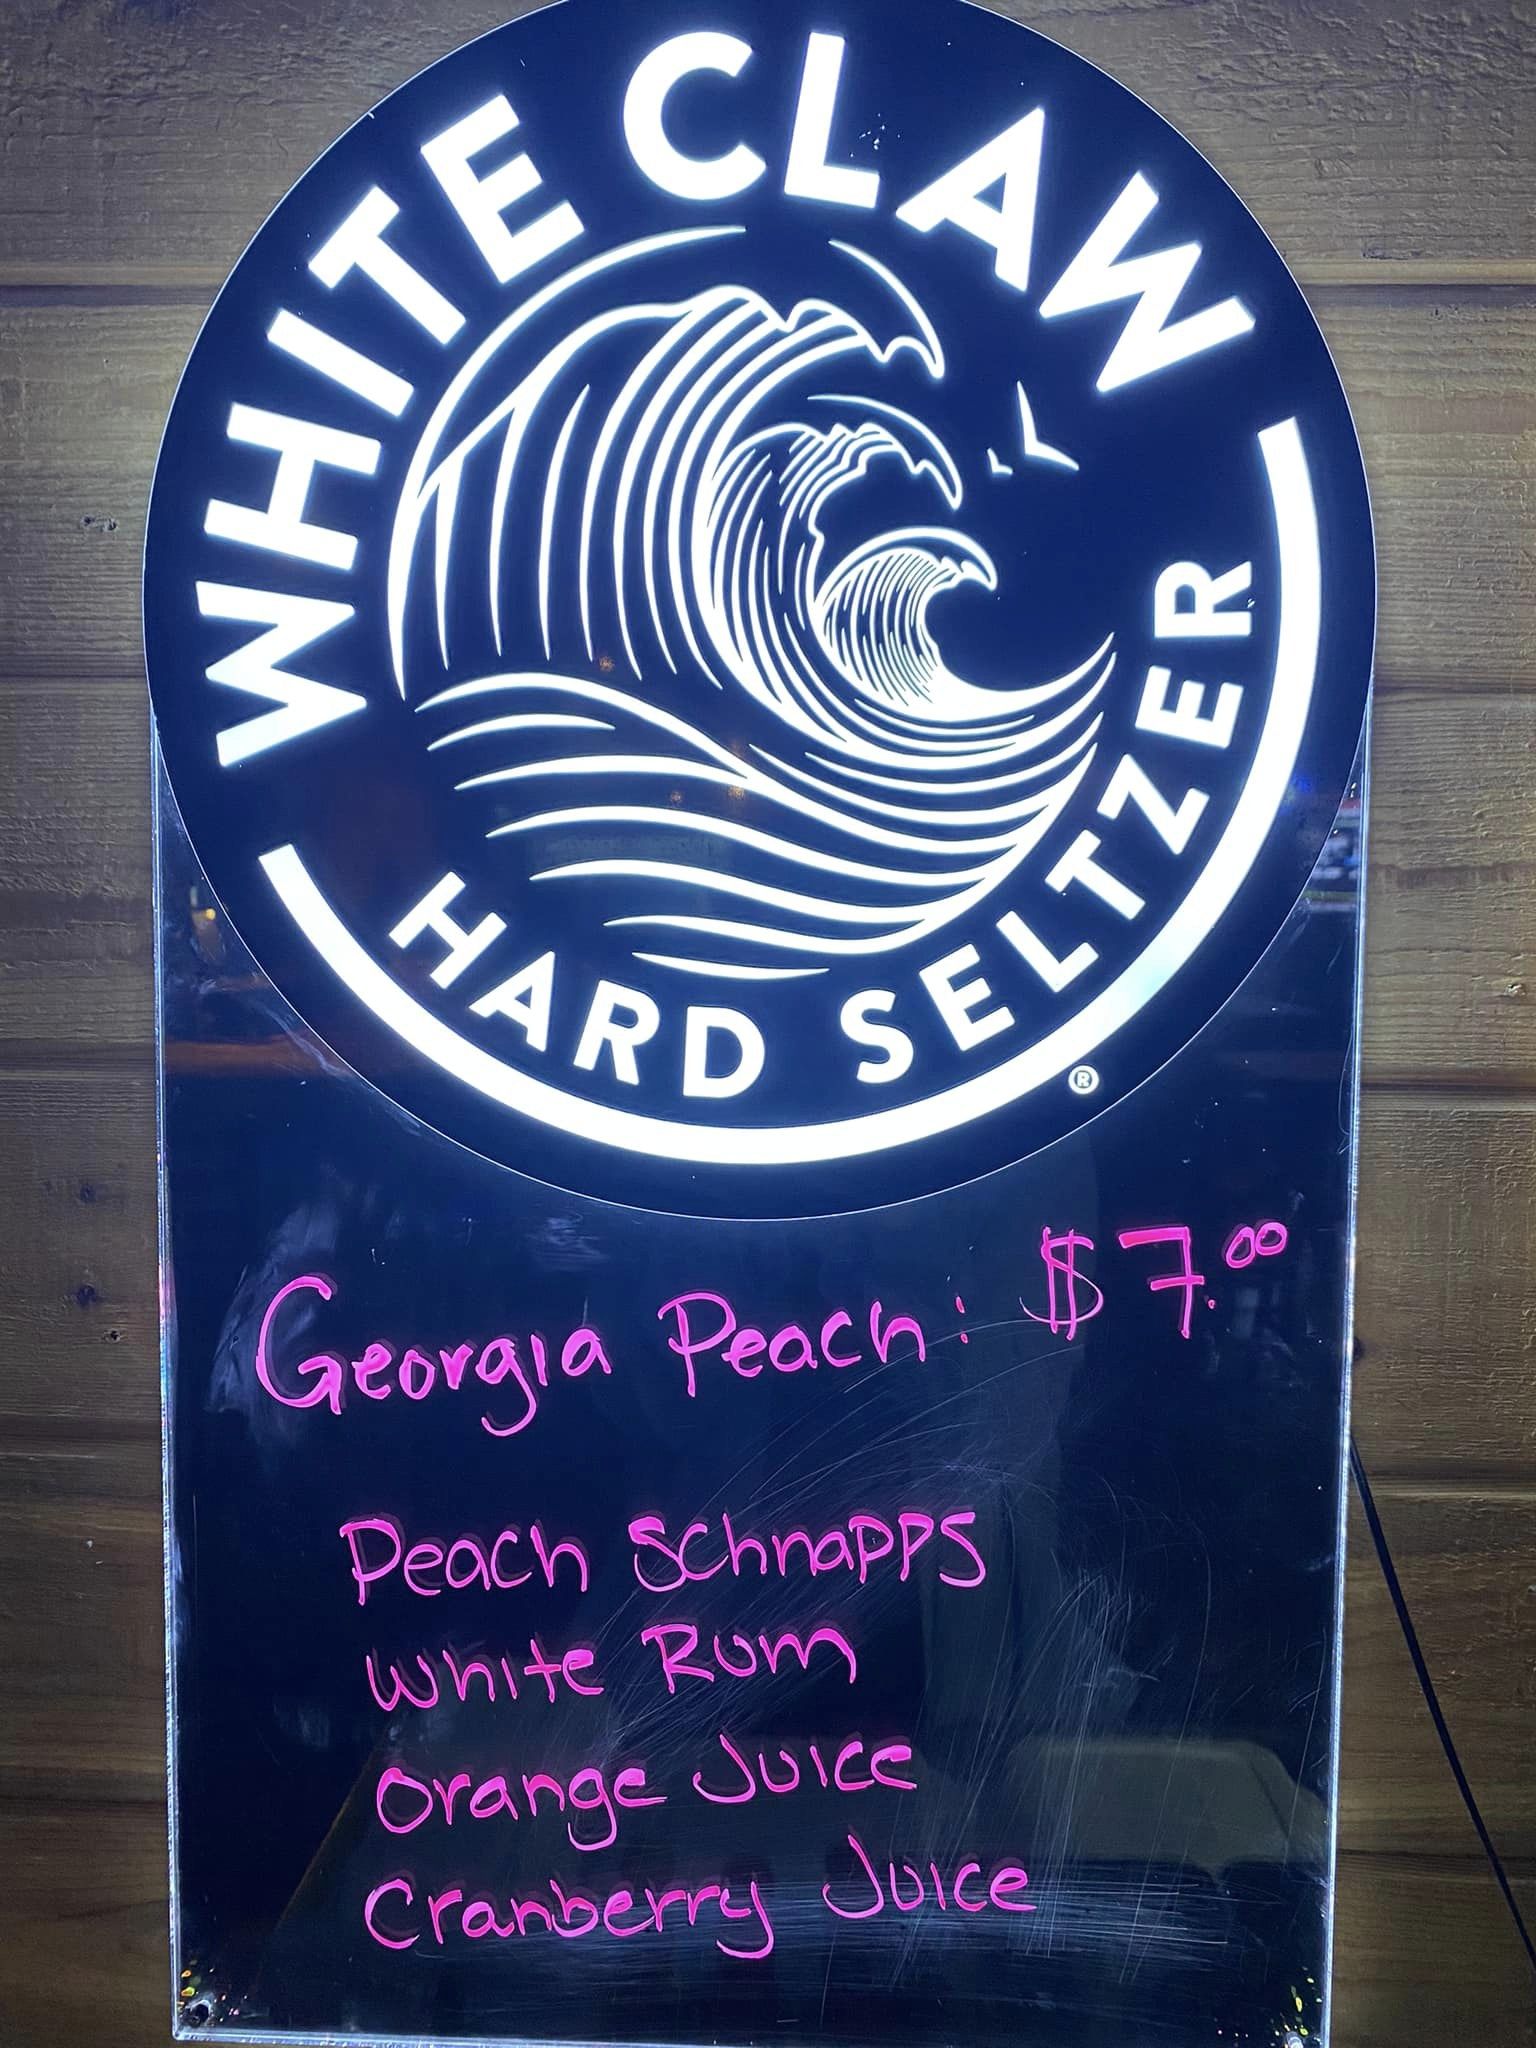 WHITE CLAW
HARD SELTZER
®
Georgia Peach: $7.00
Peach Schnapps
White Rum
Orange Juice
Cranberry Juice